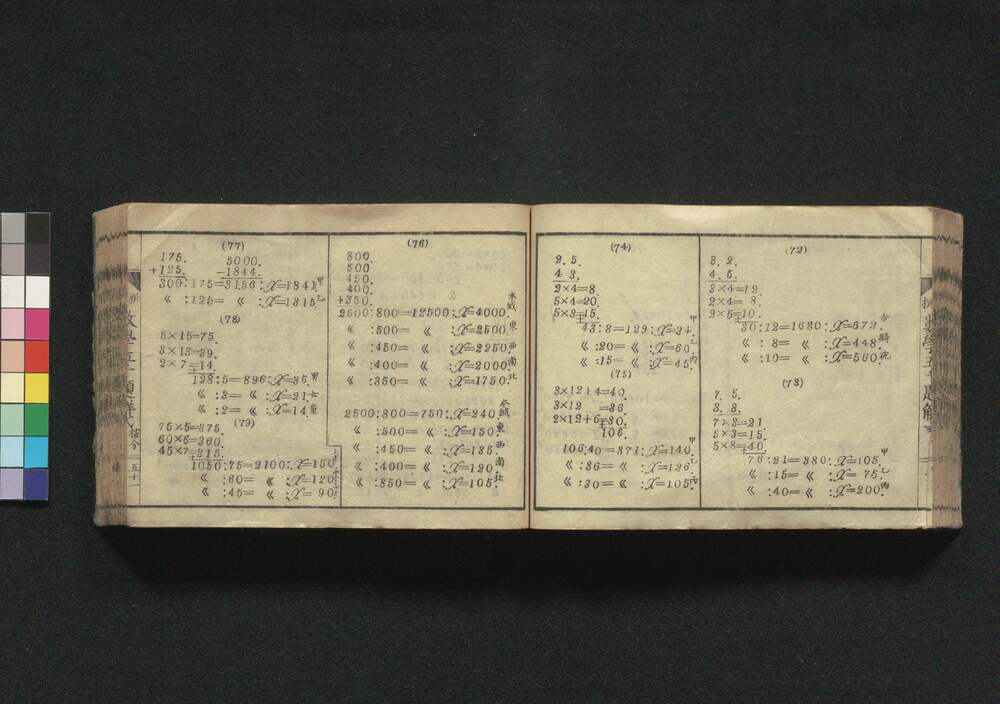 (72)
3. 2.
4. 5.
3×4=12.
2×4= 8.
2×5=10.
30:12=1680:x=672.
《 : 8= 《 :x=448.
《 :10= 《 :x=560.
(73)
7. 5.
3. 8.
7×3=21
5×3=15.
5×8=40.
76:21=380:x=105. 甲
《 :15= 《 :x= 75. 乙
《 :40= 《 :x=200. 丙
(74)
2. 5.
4 3.
2×4=8.
5×4=20.
5×3=15.
43:8=129:x=24 甲
《 :20= 《 :x=60 乙
《 :15= 《 :x=45. 丙
(75)
3×12+4=40.
3×12 =36.
2×12+6=30.
106.
106:40=371:x=140. 甲
《 :36= 《 :x=126. 乙
《 :30= 《 :x=105. 丙
(76)
800.
500
450.
400.
+350.
2500:800=12500:x=4000.
《 :500= 《 :x=2500. 東
《 :450= 《 :x=2250. 西
《 :400= 《 :x=2000. 南
《 :350= 《 :x=1750. 北
2500:800=750:x=240.
《 :500= 《 :x=150. 東
《 :450= 《 :x=135. 西
《 :400= 《 :x=120. 南
《 :350= 《 :x=105. 北
(77)
175. 5000.
+125. −1844.
300:175=3156:x=1841 甲
《 :125= 《 :x=1315 乙
(78)
5×15=75.
3×13=39.
2×7=14.
128:5=896:x=35.
《 :3= 《 :x=21
《 :2= 《 :x=14
(79)
75×5=375.
60×6=360.
45×7=315.
1050:75=2100:x=150
《 :60= 《 :x=120
《 :45= 《 :x= 90